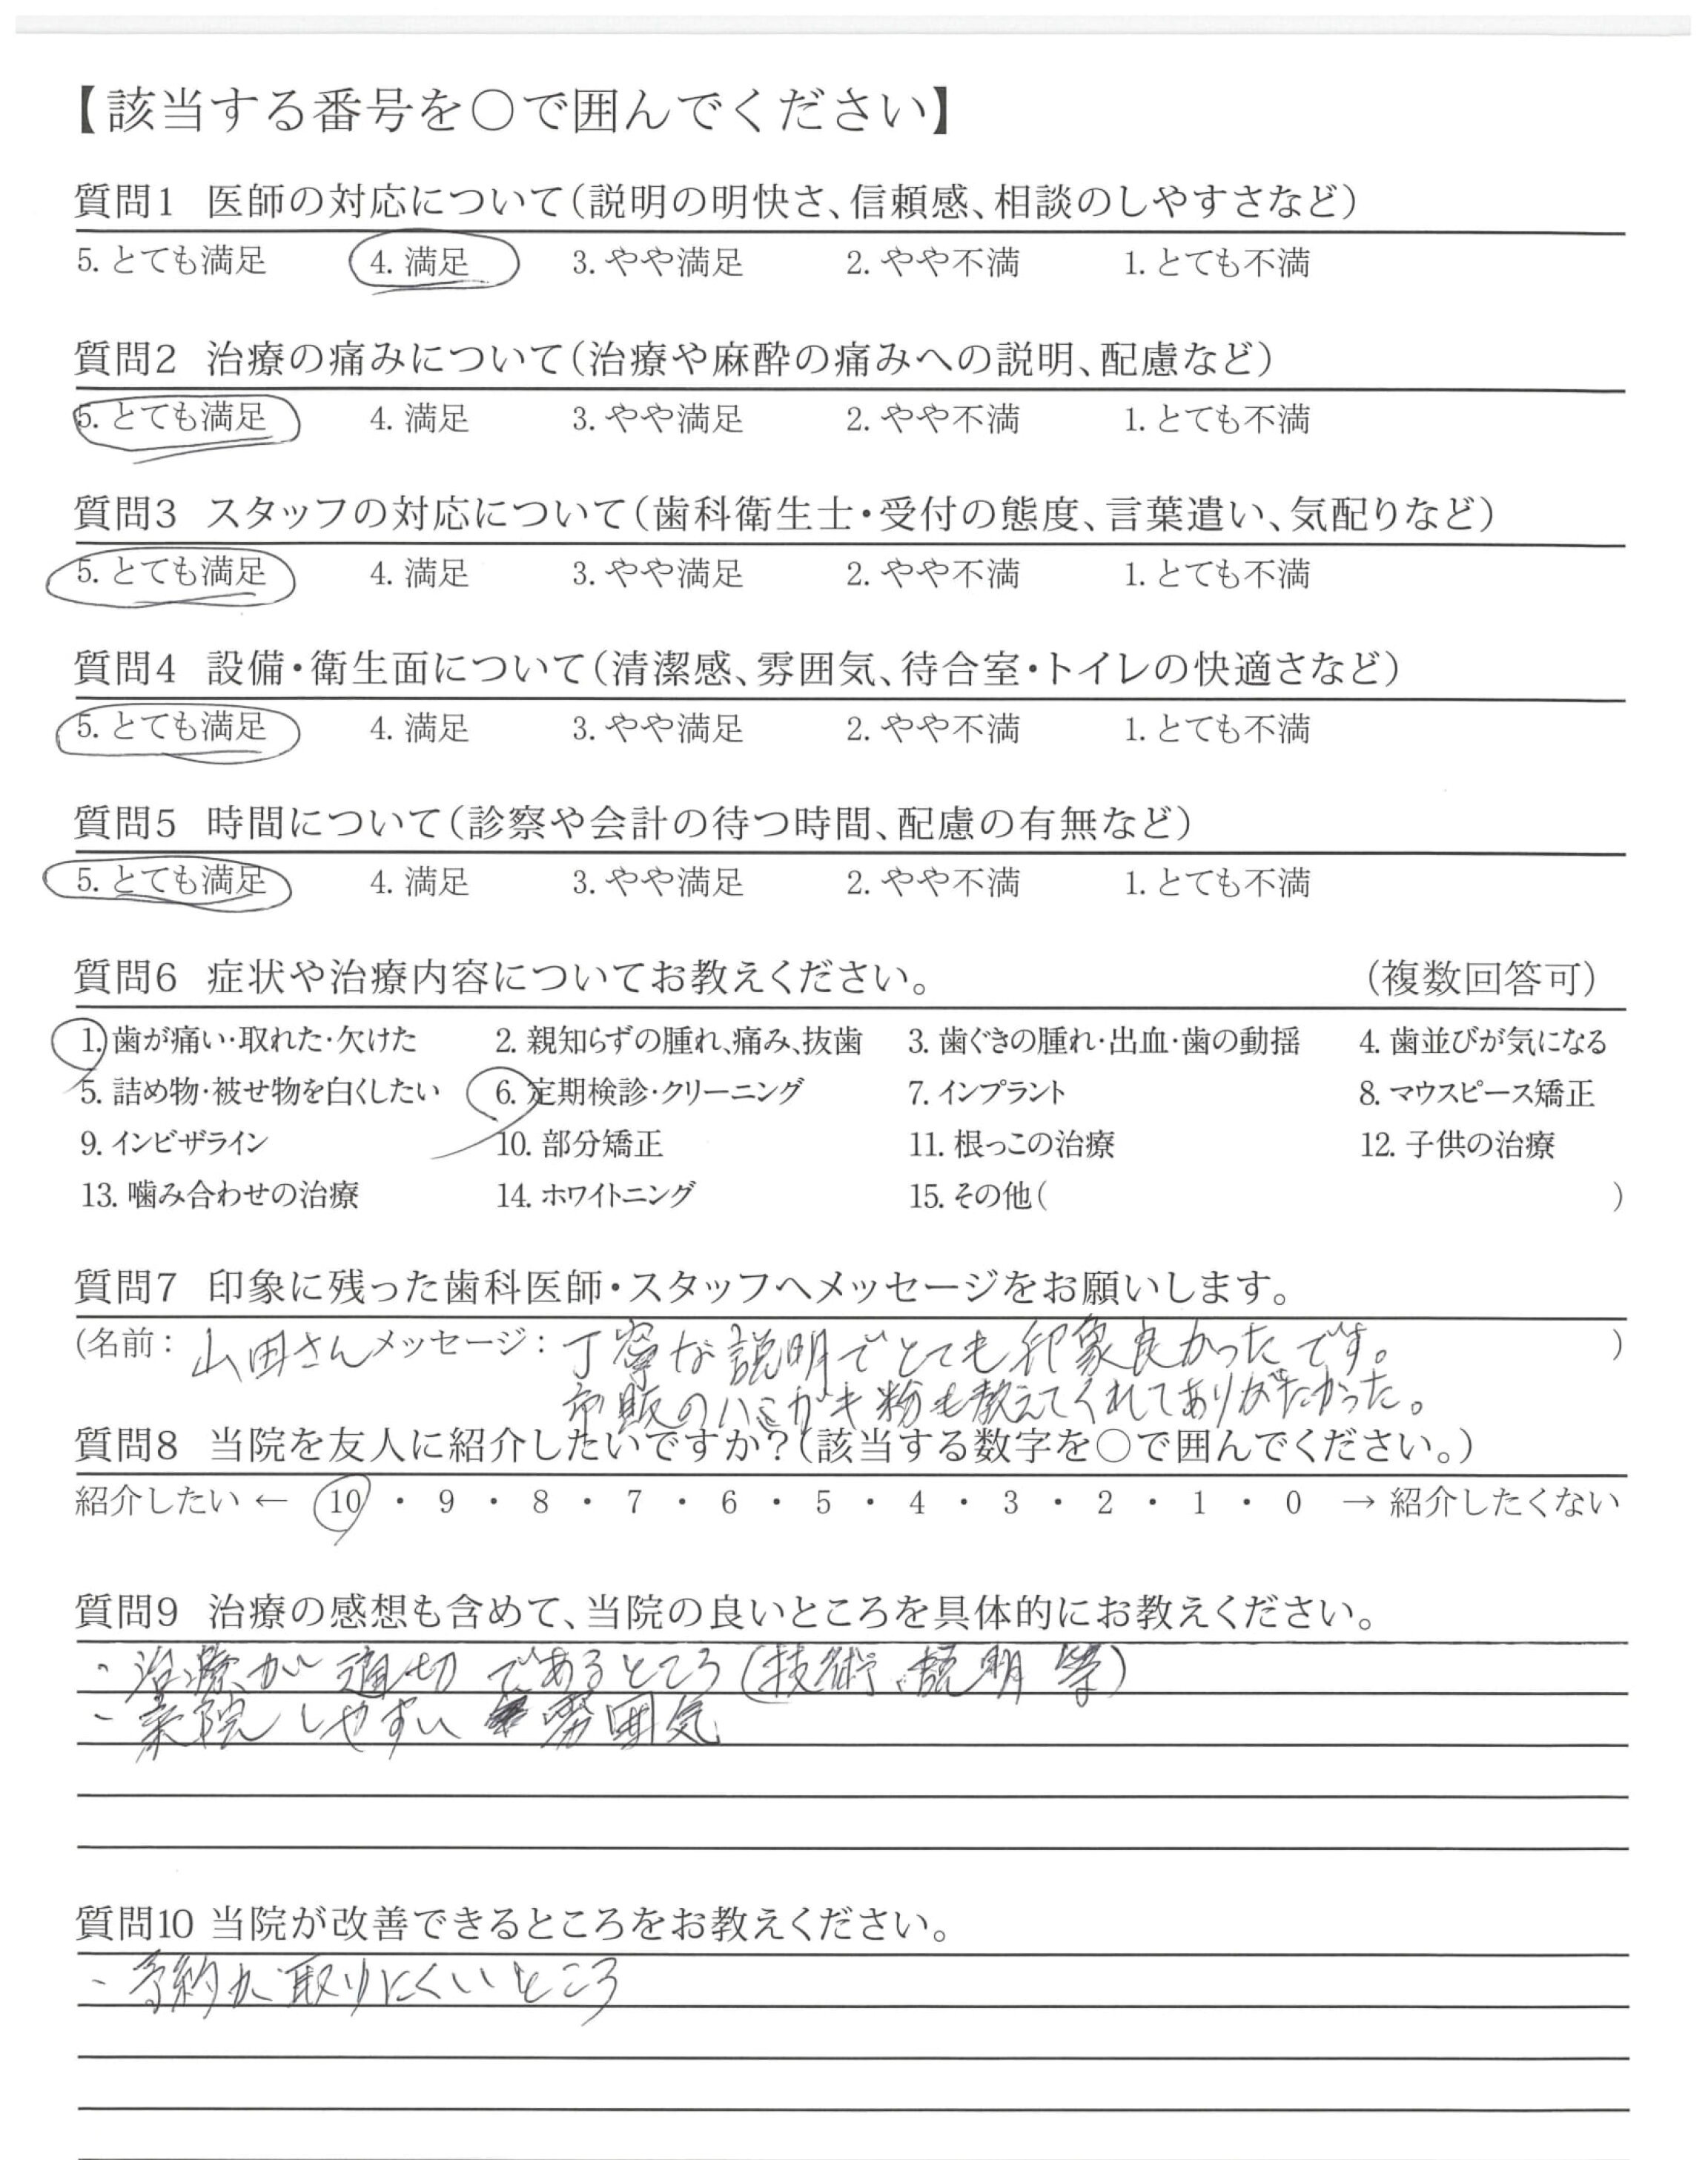 【該当する番号を○で囲んでください】
質問1 医師の対応について(説明の明快さ、信頼感、相談のしやすさなど)
5. とても満足 4. 満足 3. やや満足 2. やや不満 1. とても不満
質問2 治療の痛みについて(治療や麻酔の痛みへの説明、配慮など)
5. とても満足 4. 満足 3. やや満足 2. やや不満 1. とても不満
質問3 スタッフの対応について(歯科衛生士・受付の態度、言葉遣い、気配りなど)
5. とても満足 4. 満足 3. やや満足 2. やや不満 1. とても不満
質問4 設備・衛生面について(清潔感、雰囲気、待合室・トイレの快適さなど)
5. とても満足 4. 満足 3. やや満足 2. やや不満 1. とても不満
質問5 時間について(診察や会計の待つ時間、配慮の有無など)
5. とても満足 4. 満足 3. やや満足 2. やや不満 1. とても不満
質問6 症状や治療内容についてお教えください。 (複数回答可)
1. 歯が痛い・取れた・欠けた 2. 親知らずの腫れ、痛み、抜歯 3. 歯ぐきの腫れ・出血・歯の動揺 4. 歯並びが気になる
5. 詰め物・被せ物を白くしたい 6. 定期検診・クリーニング 7. インプラント 8. マウスピース矯正
9. インビザライン 10. 部分矯正 11. 根っこの治療 12. 子供の治療
13. 噛み合わせの治療 14. ホワイトニング 15. その他( )
質問7 印象に残った歯科医師・スタッフへメッセージをお願いします。
(名前: 山田さん メッセージ: 丁寧な説明でとても印象良かったです。 )
市販のハミガキ粉も教えてくれてありがたかった。
質問8 当院を友人に紹介したいですか?(該当する数字を○で囲んでください。)
紹介したい ← 10 ・ 9 ・ 8 ・ 7 ・ 6 ・ 5 ・ 4 ・ 3 ・ 2 ・ 1 ・ 0 → 紹介したくない
質問9 治療の感想も含めて、当院の良いところを具体的にお教えください。
・治療が適切であるところ(技術、説明等)
・来院しやすい雰囲気
質問10 当院が改善できるところをお教えください。
・予約が取りにくいところ